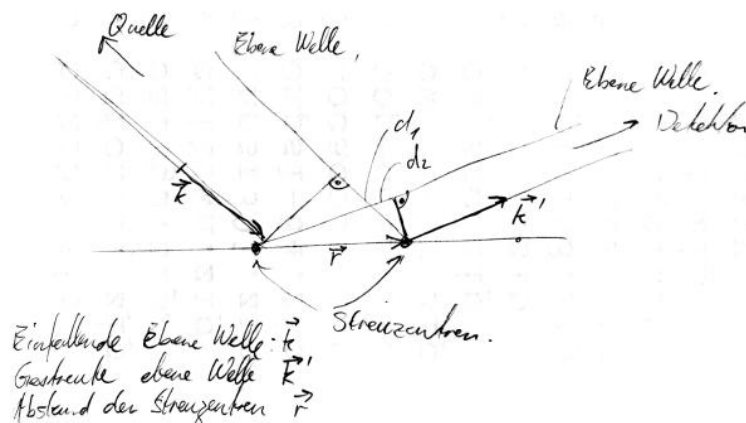 Quelle
Ebene Welle,
Ebene Welle.
Detektor
d₁
d₂
k⃗
k⃗'
r⃗
Streuzentren.
Einfallende Ebene Welle: k⃗
Gestreute ebene Welle k⃗'
Abstand der Streuzentren r⃗